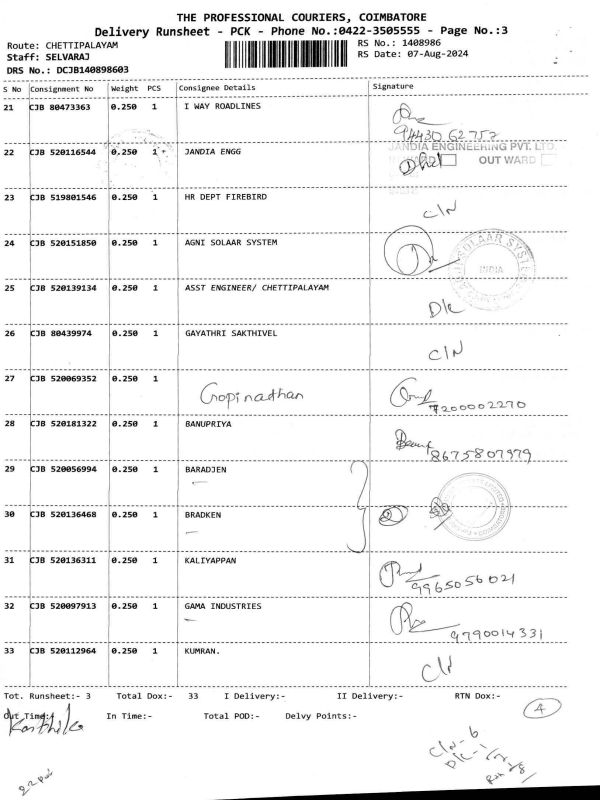 THE PROFESSIONAL COURIERS, COIMBATORE
Delivery Runsheet - PCK - Phone No.:0422-3505555 - Page No.:3
Route: CHETTIPALAYAM
RS No.: 1408986
Staff: SELVARAJ
RS Date: 07-Aug-2024
DRS No.: DCJB140898603
S No Consignment No Weight PCS Consignee Details Signature
21 CJB 80473363 0.250 1 I WAY ROADLINES
94430 62757
22 CJB 520116544 0.250 1 JANDIA ENGG
JANDIA ENGINEERING PVT. LTD
OUT WARD
23 CJB 519801546 0.250 1 HR DEPT FIREBIRD C/N
24 CJB 520151850 0.250 1 AGNI SOLAAR SYSTEM
INDIA
25 CJB 520139134 0.250 1 ASST ENGINEER/ CHETTIPALAYAM
D/L
26 CJB 80439974 0.250 1 GAYATHRI SAKTHIVEL C/N
27 CJB 520069352 0.250 1
Gopinadhan 7200002270
28 CJB 520181322 0.250 1 BANUPRIYA
8675807979
29 CJB 520056994 0.250 1 BARADJEN
30 CJB 520136468 0.250 1 BRADKEN
31 CJB 520136311 0.250 1 KALIYAPPAN
9965056021
32 CJB 520097913 0.250 1 GAMA INDUSTRIES
9790014331
33 CJB 520112964 0.250 1 KUMRAN. C/N
Tot. Runsheet:- 3 Total Dox:- 33 I Delivery:- II Delivery:- RTN Dox:-
4
Out Time:- In Time:- Total POD:- Delvy Points:-
Karthik
C/N-6